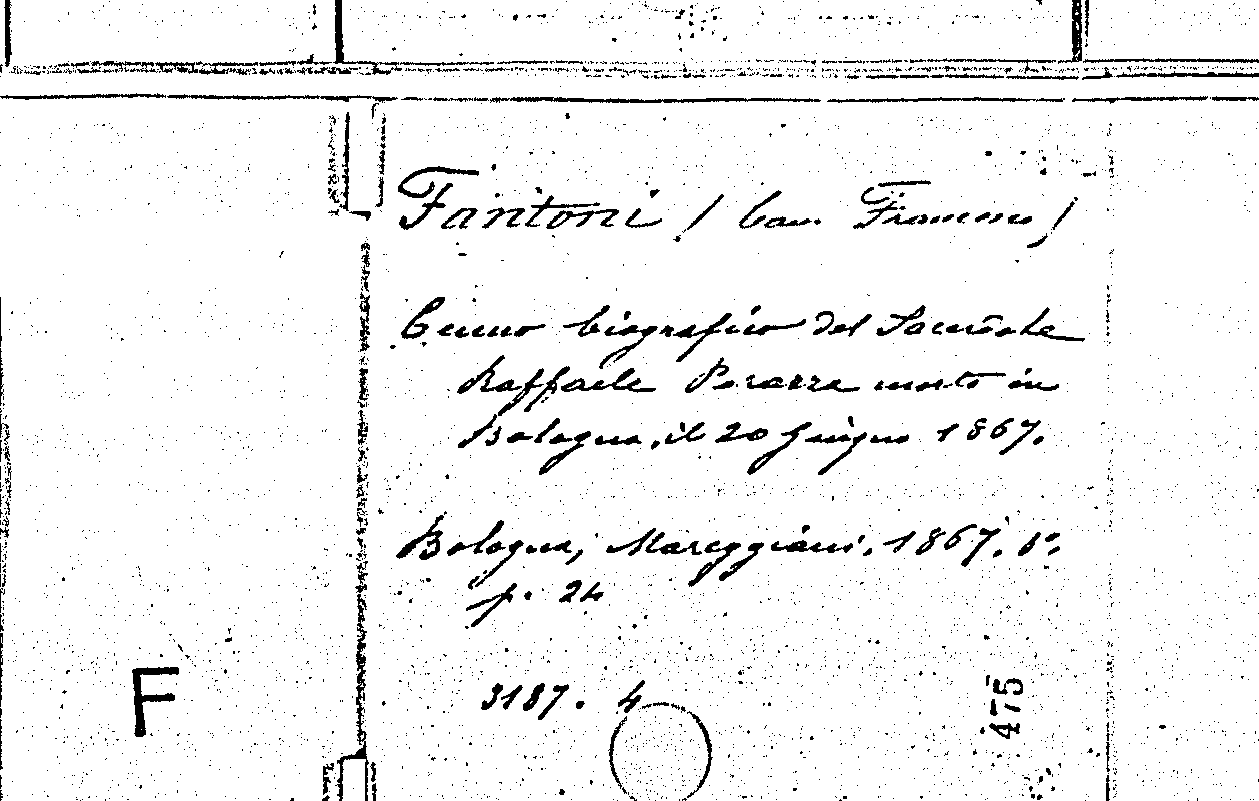 Fantoni (Cav. Francesco)
Cenno biografico del Sacerdote
Raffaele Perazza morto in
Bologna, il 20 Giugno 1867.
Bologna, Mareggiani. 1867. 8°.
p. 24
3187. 4
475
F